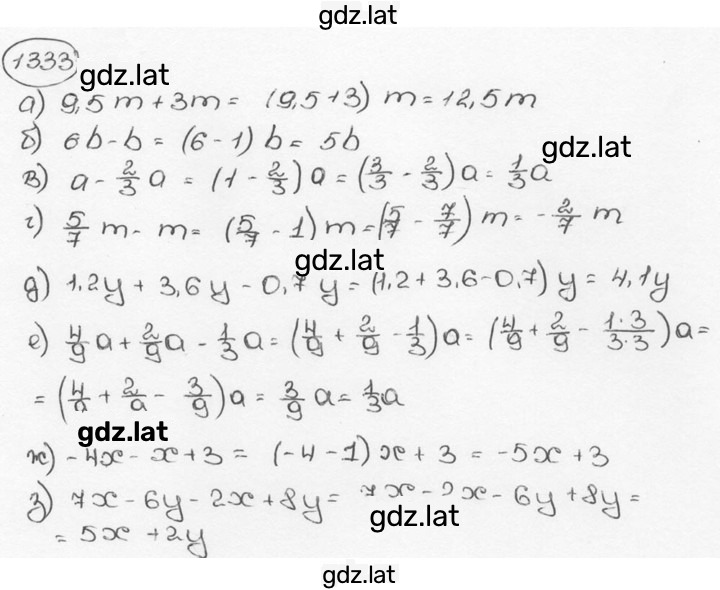 gdz.lat
1333
gdz.lat
а) 9,5m + 3m = (9,5+3) m = 12,5m
б) 6b - b = (6-1) b = 5b
gdz.lat
в) a - 2/3 a = (1 - 2/3) a = (3/3 - 2/3) a = 1/3 a
г) 5/7 m - m = (5/7 - 1) m = (5/7 - 7/7) m = - 2/7 m
gdz.lat
д) 1,2y + 3,6y - 0,7y = (1,2 + 3,6 - 0,7) y = 4,1y
е) 4/9 a + 2/9 a - 1/3 a = (4/9 + 2/9 - 1/3) a = (4/9 + 2/9 - 1·3/3·3) a =
= (4/9 + 2/9 - 3/9) a = 3/9 a = 1/3 a
gdz.lat
ж) -4x - x + 3 = (-4-1) x + 3 = -5x + 3
з) 7x - 6y - 2x + 8y = 7x - 2x - 6y + 8y =
gdz.lat
= 5x + 2y
gdz.lat